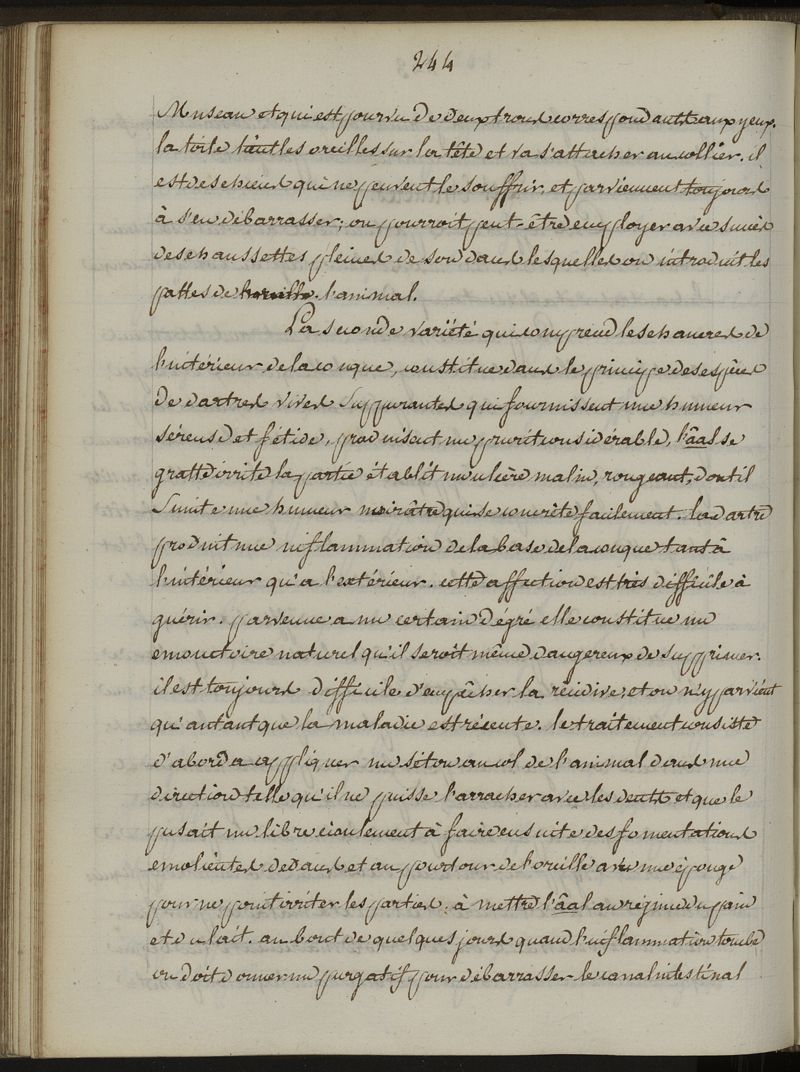 244
Museau et qui est pourvu de deux trous correspondants aux yeux.
la toile tient les oreilles sur la tête et va s'attacher au collier. il
est des chiens qui ne peuvent le souffrir et parviennent toujours
à s'en débarrasser; on pourroit peut-être employer avec succès
des chaussettes pleines de son dans lesquelles on introduit les
pattes de l'animal.
La seconde variété qui comprend les chancres de
l'intérieur de la conque, constitue dans le principe des espèces
de dartres vives suppurantes qui fournissent une humeur
séreuse et fétide, produisant un prurit considérable, l'âal se
gratte irrite la partie établit un ulcère malin, rongeant, dont il
suinte une humeur noirâtre qui se concrète facilement. la dartre
produit une inflammation de la base de la conque tant à
l'intérieur qu'a l'extérieur. cette affection est très difficile à
guérir. parvenue a un certain dégré elle constitue un
emonctoire naturel qu'il seroit même dangereux de supprimer.
il est toujours difficile d'empêcher la récidive, et on n'y parvient
qu'autant que la maladie est récente. le traitement consiste
d'abord a appliquer un séton au col de l'animal dans une
direction telle qu'il ne puisse l'arracher avec les dents et que le
pus ait un libre écoulement à faire ensuite des fomentations
emolientes dedans et au pourtour de l'oreille avec une éponge
pour ne point irriter les parties. à mettre l'âal au régime du pain
et du lait. au bout de quelques jours quand l'inflammation tombe
on doit donner un purgatif pour débarrasser le canal intestinal